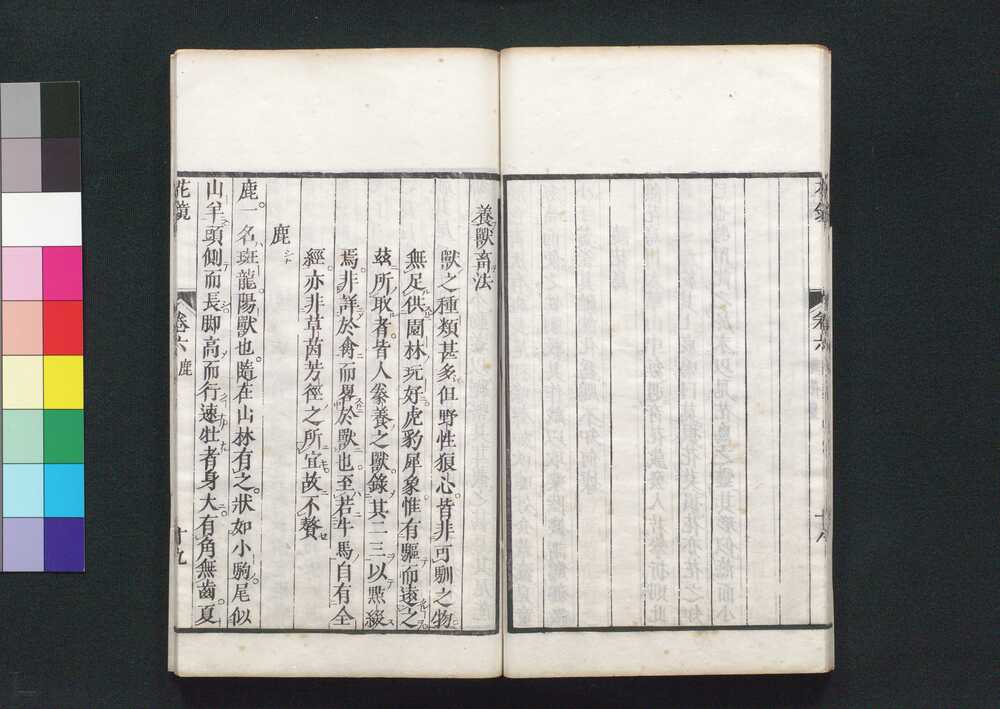 養獸畜法
獸之種類甚多但野性狼心皆非可馴之物
無足供園林玩好虎豹犀象惟有驅而遠之
茲所取者皆人豢養之獸錄其二三以㸃綴
焉非詳於禽而畧於獸也至若牛馬自有全
經亦非草茵芳徑之所宜故不贅
鹿
鹿一名斑龍陽獸也隨在山林有之狀如小駒尾似
山羊頭側而長脚高而行速牡者身大有角無齒夏
花鏡 卷六 鹿 十九